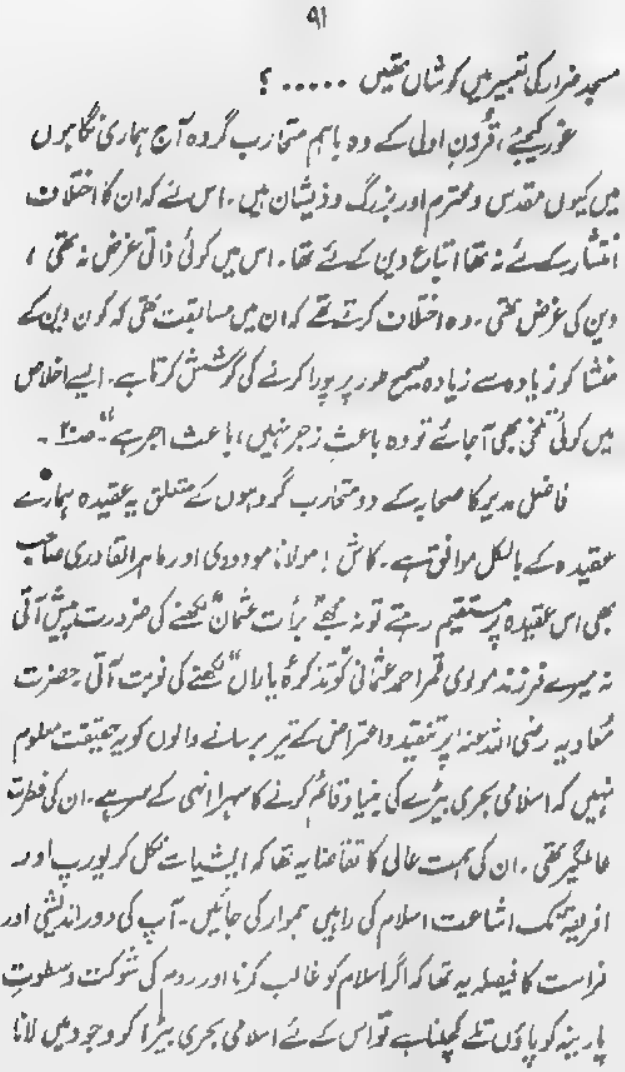 ۹۱
مسجد ضرار کی تعبیر میں کوشاں تھیں ..... ؟
غور کیجئے ، قرُونِ اولیٰ کے وہ باہم متحارب گروہ آج ہماری نگاہوں
میں کیوں مقدس و محترم اور بزرگ و ذیشان ہیں ۔ اس لئے کہ ان کا اختلاف
انتشار کے لئے نہ تھا اتباع دین کے لئے تھا ۔ اس میں کوئی ذاتی غرض نہ تھی ،
دین کی غرض تھی ۔ وہ اختلاف کرتے تھے کہ ان میں مسابقت تھی کہ کون دین کے
منشا کو زیادہ سے زیادہ صحیح طور پر پورا کرنے کی کوشش کرتا ہے ۔ ایسے اخلاص
میں کوئی تلخی بھی آجائے تو وہ باعثِ زجر نہیں ، باعث اجر ہے" ۔ صـ۲۰ ۔
فاضل مدیر کا صحابہ کے دو متحارب گروہوں کے متعلق یہ عقیدہ ہمارے
عقیدہ کے بالکل موافق ہے ۔ کاش ! مولانا مودودی اور ماہر القادری صاحب
بھی اس عقیدہ پر مستقیم رہتے تو نہ مجھے "برأت عثمانؓ" لکھنے کی ضرورت پیش آتی
نہ میرے فرزند مولوی قمر احمد عثمانی کو "تذکرۂ یاراں" لکھنے کی نوبت آتی ۔ حضرت
مُعاویہ رضی اللہ عنہ پر تنقید و اعتراض کے تیر برسانے والوں کو یہ حقیقت معلوم
نہیں کہ اسلامی بحری بیڑے کی بنیاد قائم کرنے کا سہرا انہی کے سر ہے ۔ ان کی فطرت
عالمگیر تھی ۔ ان کی ہمت عالی کا تقاضا یہ تھا کہ ایشیا سے نکل کر یورپ اور
افریقہ تک اشاعت اسلام کی راہیں ہموار کی جائیں ۔ آپ کی دور اندیشی اور
فراست کا فیصلہ یہ تھا کہ اگر اسلام کو غالب کرنا اور روم کی شوکت و سطوتِ
پارینہ کو پاؤں تلے کچلنا ہے تو اس کے لئے اسلامی بحری بیڑا کو وجود میں لانا